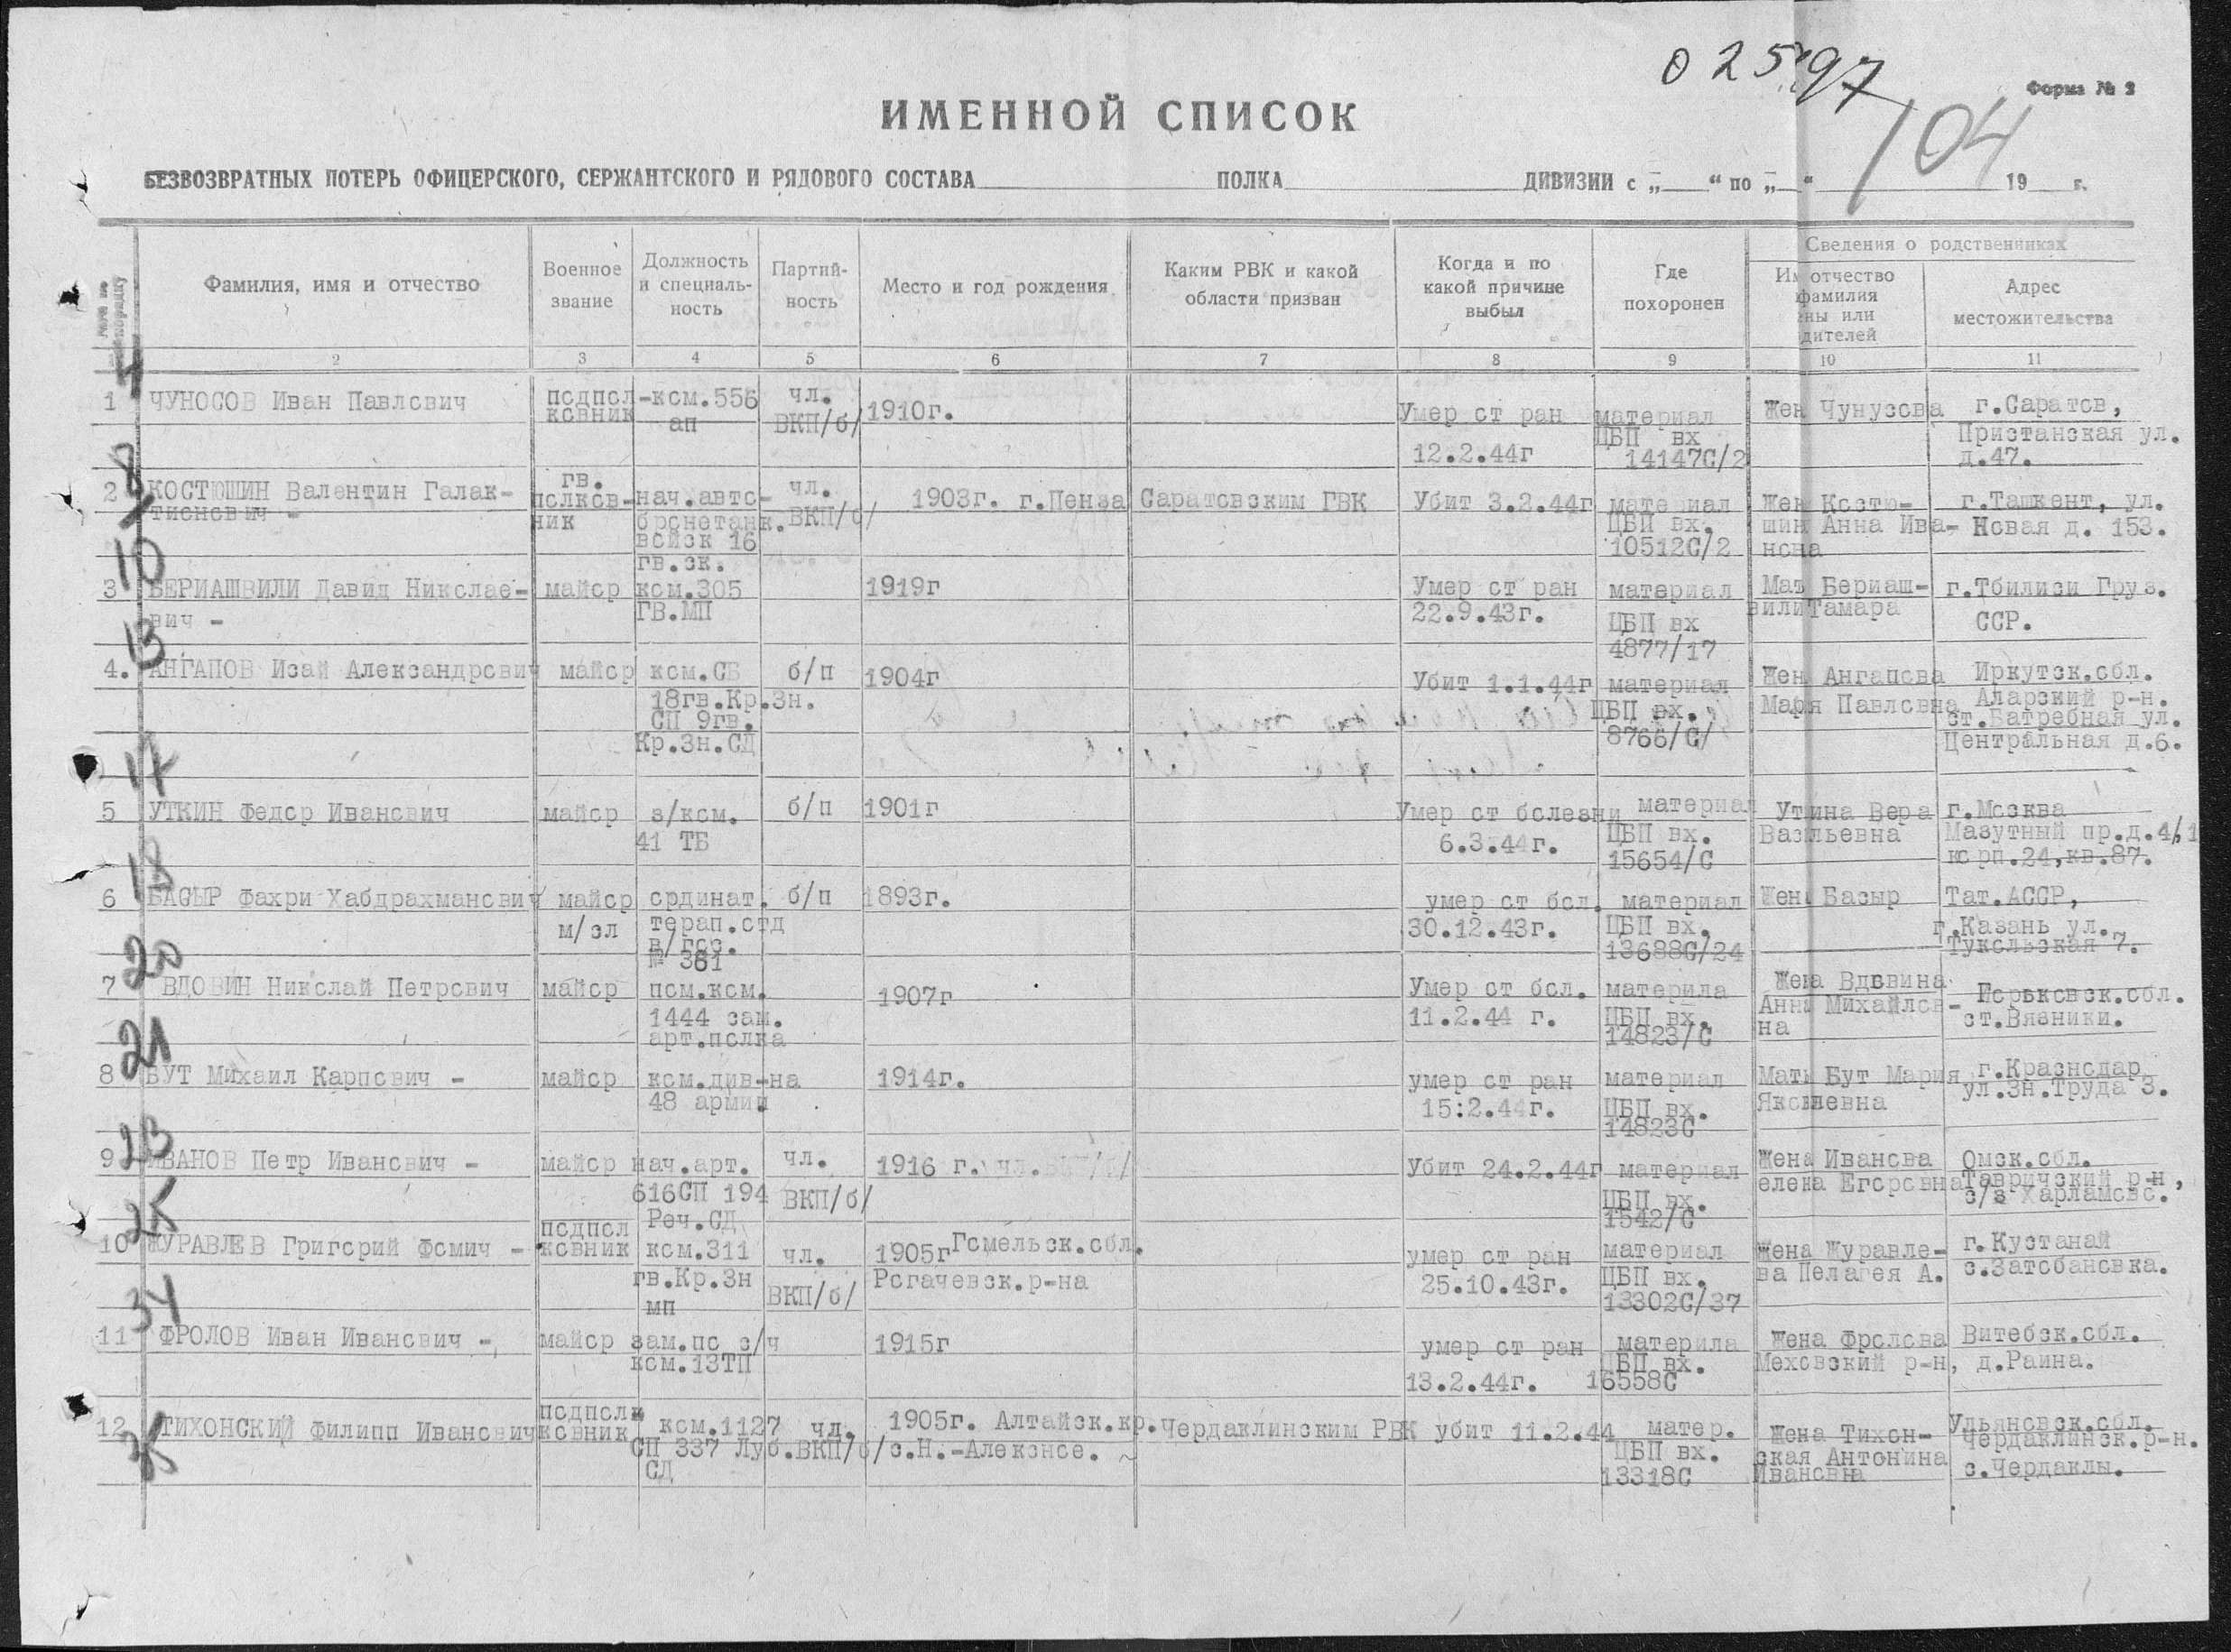 02597
Форма № 2
104
ИМЕННОЙ СПИСОК
БЕЗВОЗВРАТНЫХ ПОТЕРЬ ОФИЦЕРСКОГО, СЕРЖАНТСКОГО И РЯДОВОГО СОСТАВА ПОЛКА ДИВИЗИИ с „ “ по „ “ 19 г.
№№ по порядку
Фамилия, имя и отчество
Военное звание
Должность и специаль-ность
Партий-ность
Место и год рождения
Каким РВК и какой области призван
Когда и по какой причине выбыл
Где похоронен
Сведения о родственниках
отчество фамилия
Адрес местожительства
2 3 4 5 6 7 8 9 10 11
4
1 ЧУНОСОВ Иван Павлович подпол-ковник ком.556 ап чл. ВКП/б/ 1910г. Умер от ран 12.2.44г материал ЦБП вх 14147С/2 Жен Чунусова г.Саратов, Пристанская ул. д.47.
8
2 КОСТЮШИН Валентин Галак-тионович - гв. полков-ник нач.авто-бронетанк. войск 16 гв.ск. чл. ВКП/б/ 1903г. г.Пенза Саратовским ГВК Убит 3.2.44г материал ЦБП вх. 10512С/2 Жен Костю-шин Анна Ива-нова г.Ташкент, ул. Новая д. 153.
10
3 БЕРИАШВИЛИ Давид Николае-вич - майор ком.305 ГВ.МП 1919г Умер от ран 22.9.43г. материал ЦБП вх 4877/17 Мат Бериаш-вили Тамара г.Тбилиси Груз. ССР.
13
4. АНГАПОВ Исай Александрович майор ком.СБ 18гв.Кр.Зн. СП 9гв. Кр.Зн.СД б/п 1904г Убит 1.1.44г материал ЦБП вх. 8766/С/ Жен Ангапова Мария Павловна Иркутск.обл. Аларский р-н. ст.Батребная ул. Центральная д.6.
17
5 УТКИН Федор Иванович майор з/ком. 41 ТБ б/п 1901г Умер от болезни 6.3.44г. материал ЦБП вх. 15654/С Утина Вера Васильевна г.Москва Мазутный пр.д.4/1 корп.24,кв.87.
18
6 БАСЫР Фахри Хабдрахманович майор м/сл ординат. терап.отд в/гос. № 361 б/п 1893г. умер от бол. 30.12.43г. материал ЦБП вх. 13688С/24 Жена Басыр Тат.АССР, г.Казань ул. Тукольская 7.
20
7 ВДОВИН Николай Петрович майор пом.ком. 1444 сам. арт.полка 1907г Умер от бол. 11.2.44 г. материла ЦБП вх. 14823/С Жена Вдовина Анна Михайлов-на Горьковск.обл. ст.Вязники.
21
8 БУТ Михаил Карпович - майор ком.див-на 48 армии 1914г. умер от ран 15:2.44г. материал ЦБП вх. 14823С Мать Бут Мария Яковлевна г.Краснодар ул.Зн.Труда 3.
23
9 ИВАНОВ Петр Иванович - майор нач.арт. 616СП 194 Реч.СД чл. ВКП/б/ 1916 г. Убит 24.2.44г материал ЦБП вх. 1542/С Жена Иванова елена Егоровна Омск.обл. Тавричский р-н, с/з Харламово.
25
10 ЖУРАВЛЕВ Григорий Фомич - подпол ковник ком.311 гв.Кр.Зн мп чл. ВКП/б/ 1905г Гомельск.обл. Рогачевск.р-на умер от ран 25.10.43г. материал ЦБП вх. 13302С/37 Жена Журавле-ва Пелагея А. г.Кустанай с.Затобановка.
34
11 ФРОЛОВ Иван Иванович - майор зам.по с/ч ком.13ТП 1915г умер от ран 13.2.44г. материла ЦБП вх. 16558С Жена Фролова Витебск.обл. Меховский р-н, д.Раина.
35
12 ТИХОНСКИЙ Филипп Иванович подпол ковник ком.1127 СП 337 Луб. СД чл. ВКП/б/ 1905г. Алтайск.кр. с.Н.-Алексное. Чердаклинским РВК убит 11.2.44 матер. ЦБП вх. 13318С Жена Тихон-ская Антонина Ивановна Ульяновск.обл. Чердаклинск.р-н. с.Чердаклы.